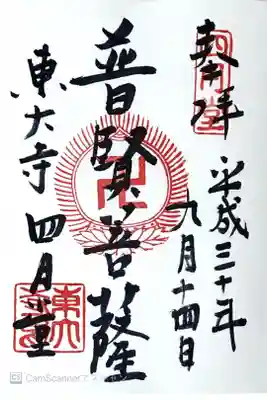 奉拝
平成三十年
九月十四日
普賢菩薩
東大寺 四月堂
CamScanner